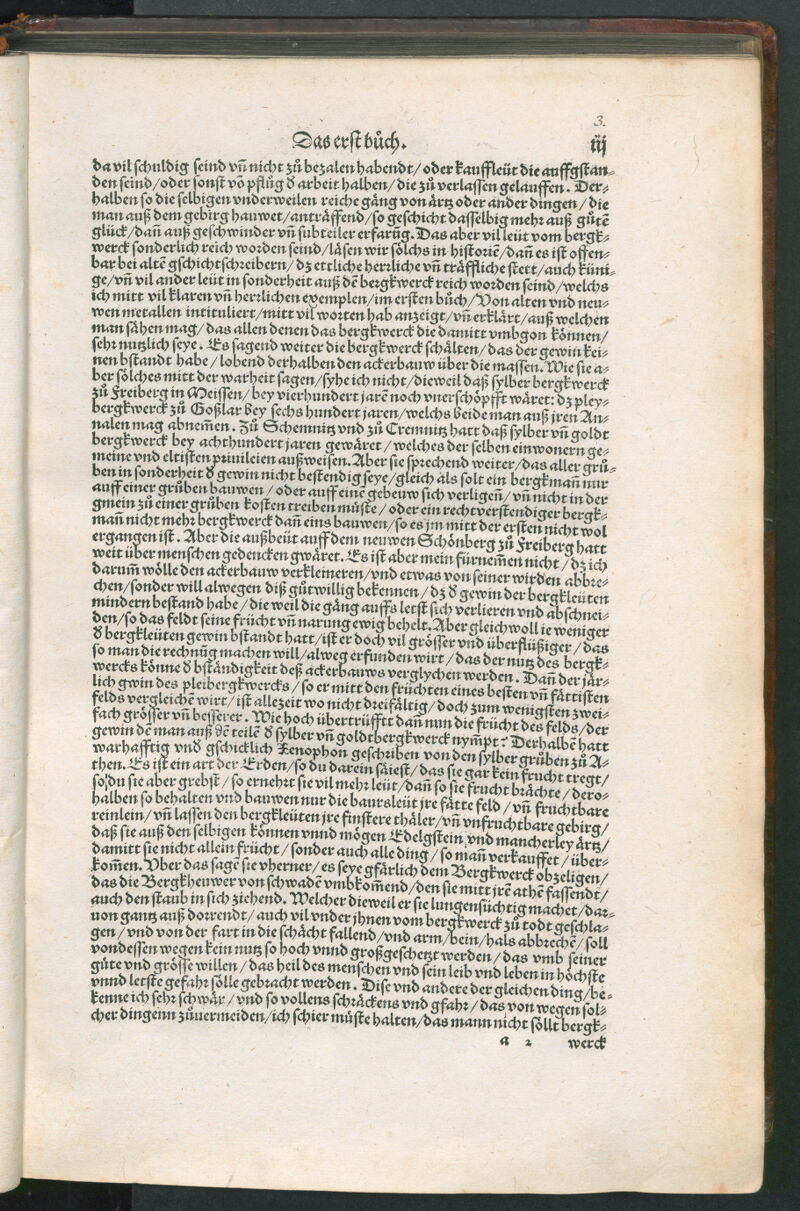 3.
Das erst bůch.
iij
da vil schuldig seind vñ nicht zů bezalen habendt/oder kauffleüt die auffgstan⸗
den seind/oder sonst võ pflůg ď arbeit halben/die zů verlassen gelauffen. Der⸗
halben so die selbigen vnderweilen reiche gäng von ärtz oder ander dingen/die
man auß dem gebirg hauwet/anträffend/so geschicht dasselbig mehr auß gůtẽ
glück/dañ auß geschwinder vñ subteiler erfarũg. Das aber vil leüt vom bergk⸗
werck sonderlich reich worden seind/läsen wir sölchs in historiẽ/dañ es ist offen⸗
bar bei altẽ gschichtschreibern/dz ettliche herrliche vñ träffliche stett/auch küni⸗
ge/vñ vil ander leüt in sonderheit auß dẽ bergkwerck reich worden seind/welchs
ich mitt vil klaren vñ herrlichen exemplen/im ersten bůch/Von alten vnd neu⸗
wen metallen intituliert/mitt vil worten hab anzeigt/vñ erklärt/auß welchen
man sähen mag/das allen denen das bergkwerck die damitt vmbgon können/
sehr nutzlich seye. Es sagend weiter die bergkwerck schälten/das der gewin kei⸗
nen bstandt habe/lobend derhalben den ackerbauw über die massen. Wie sie a⸗
ber sölches mitt der warheit sagen/syhe ich nicht/dieweil daß sylber bergkwerck
zů Freiberg in Meissen/bey vierhundert jarẽ noch vnerschöpfft wäret: dz pley⸗
bergkwerck zů Goßlar bey sechs hundert jaren/welchs beide man auß jren An⸗
nalen mag abnem̃en. Zů Schemnitz vnd zů Cremnitz hatt daß sylber vñ goldt
bergkwerck bey achthundert jaren gewäret/welches der selben einwonern ge⸗
meine vnd eltisten priuileien außweisen. Aber sie sprechend weiter/das aller grů⸗
ben in sonderheit ď gewin nicht bestendig seye/gleich als solt ein bergkmañ nur
auff einer grůben bauwen/oder auff eine gebeuw sich verligeñ/vñ nicht in der
gmein zů einer grůben kosten treiben můste/oder ein rechtverstendiger bergk⸗
mañ nicht mehr bergkwerck dañ eins bauwen/so es jm mitt der ersten nicht wol
ergangen ist. Aber die außbeüt auff dem neuwen Schönberg zů Freiberg hatt
weit über menschen gedencken gwäret. Es ist aber mein fürnem̃en nicht/dz ich
darum̃ wölle den ackerbauw verkleineren/vnd etwas von seiner wirden abbre⸗
chen/sonder will alwegen diß gůtwillig bekennen/dz ď gewin der bergkleüten
mindern bestand habe/die weil die gäng auffs letst sich verlieren vnd abschnei⸗
den/so das feldt seine frücht vñ narung ewig behelt. Aber gleichwoll ie weniger
ď bergkleüten gewin bstandt hatt/ist er doch vil grösser vnd überflüßiger/das
so man die rechnũg machen will/alweg erfunden wirt/das der nutz des bergk⸗
wercks könne ď bständigkeit deß ackerbauws verglychen werden. Dañ der jär⸗
lich gwin des pleibergkwercks/so er mitt den früchten eines besten vñ fättisten
felds vergleichẽ wirt/ist allezeit wo nicht dreifältig/doch zum wenigsten zwei⸗
fach grösser vñ besserer. Wie hoch übertrifftt dañ nun die frücht des felds/der
gewin dẽ man auß dẽ teilẽ ď sylber vñ goldtbergkwerck nym̃pt? Derhalbẽ hatt
warhafftig vnd gschicklich Xenophon geschriben von den sylber grůben zů A⸗
then. Es ist ein art der Erden/so du darein säiest/das sie gar kein frucht tregt/
so/du sie aber grebst/so ernehrt sie vil mehr leüt/dañ so sie frucht brächte/dero⸗
halben so behalten vnd bauwen nur die baursleüt jre fätte feld/vñ fruchtbare
reinlein/vñ lassen den bergkleüten jre finstere thäler/vñ vnfruchtbare gebirg/
daß sie auß den selbigen können vnnd mögen Edelgstein vnd mancherley ärtz/
damitt sie nicht allein frücht/sonder auch alle ding/so mañ verkauffet/über⸗
kom̃en. Vber das sagẽ sie vherner/es seye gfärlich dem Bergkwerck obzeligen/
das die Bergkheuwer von schwadẽ vmbkom̃end/den sie mitt jrẽ athẽ fassendt/
auch den staub in sich ziehend. Welcher dieweil er sie lungensüchtig machet/dar⸗
uon gantz auß dorrendt/auch vil vnder jhnen vom bergkwerck zů todt geschla⸗
gen/vnd von der fart in die schächt fallend/vnd arm/bein/hals abbrechẽ/soll
vondessen wegen kein nutz so hoch vnnd großgeschetzt werden/das vmb seiner
güte vnd grösse willen/das heil des menschen vnd sein leib vnd leben in höchste
vnnd letste gefahr sölle gebracht werden. Dise vnd andere der gleichen ding/be⸗
kenne ich sehr schwär/vnd so vollens schräckens vnd gfahr/das von wegen sol⸗
cher dingenn zůuermeiden/ich schier můste halten/das mann nicht söllt bergk⸗
a 2 werck